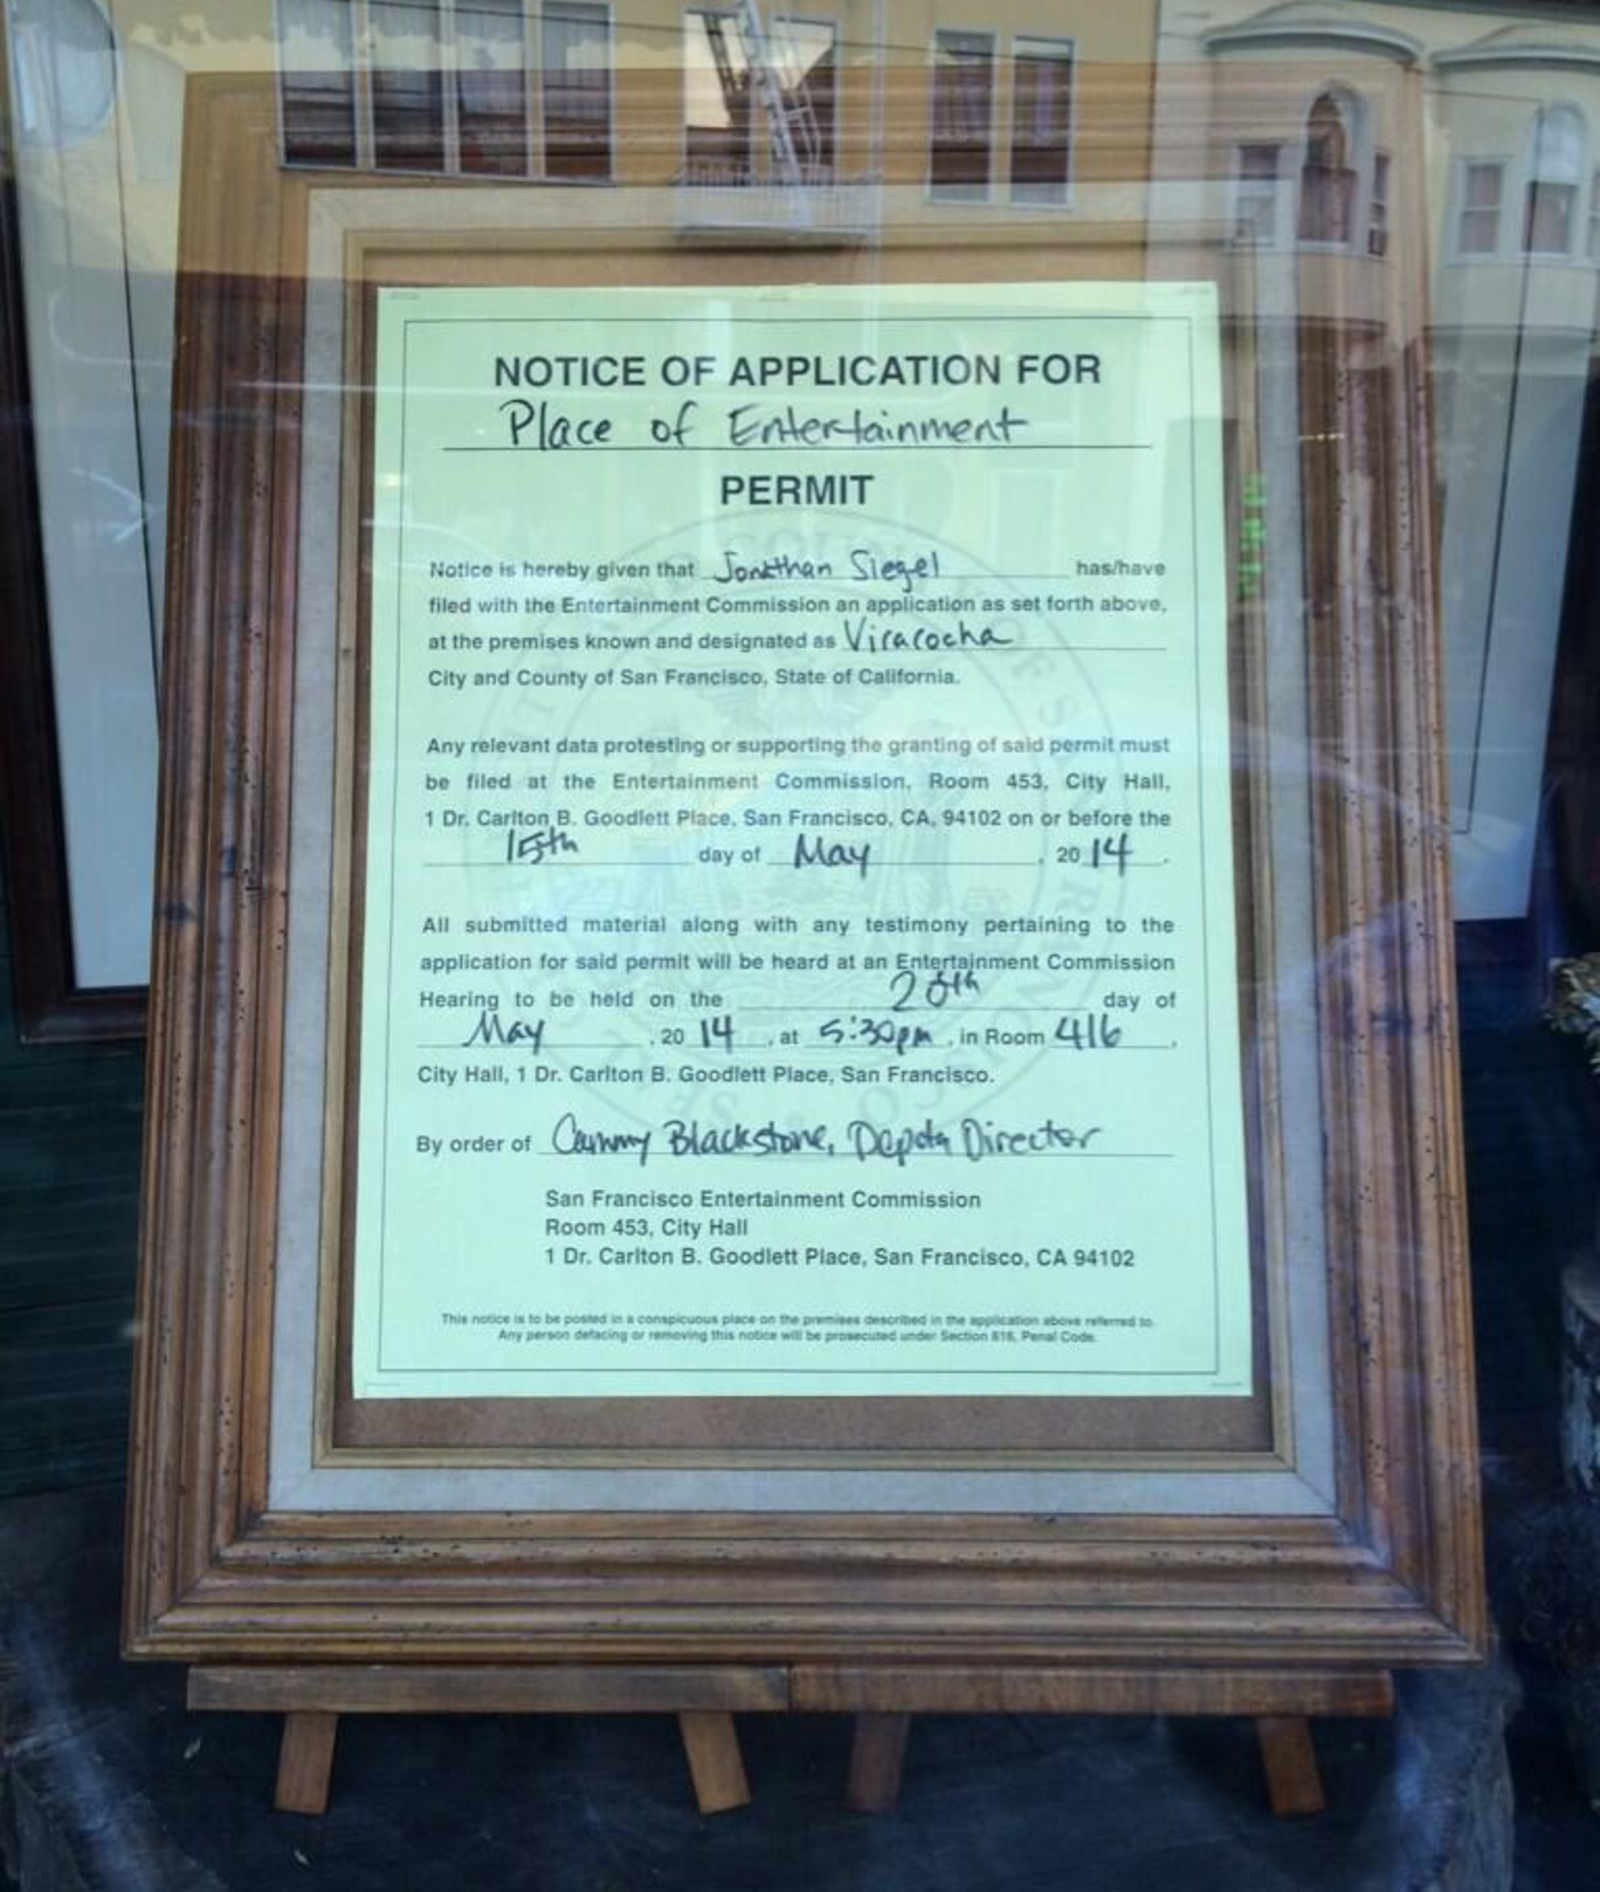 NOTICE OF APPLICATION FOR
Place of Entertainment
PERMIT
Notice is hereby given that Jonathan Siegel has/have
filed with the Entertainment Commission an application as set forth above,
at the premises known and designated as Viracocha
City and County of San Francisco, State of California.
Any relevant data protesting or supporting the granting of said permit must
be filed at the Entertainment Commission, Room 453, City Hall,
1 Dr. Carlton B. Goodlett Place, San Francisco, CA, 94102 on or before the
15th day of May, 2014.
All submitted material along with any testimony pertaining to the
application for said permit will be heard at an Entertainment Commission
Hearing to be held on the 20th day of
May, 2014, at 5:30pm, in Room 416,
City Hall, 1 Dr. Carlton B. Goodlett Place, San Francisco.
By order of Cammy Blackstone, Deputy Director
San Francisco Entertainment Commission
Room 453, City Hall
1 Dr. Carlton B. Goodlett Place, San Francisco, CA 94102
This notice is to be posted in a conspicuous place on the premises described in the application above referred to.
Any person defacing or removing this notice will be prosecuted under Section 616, Penal Code.